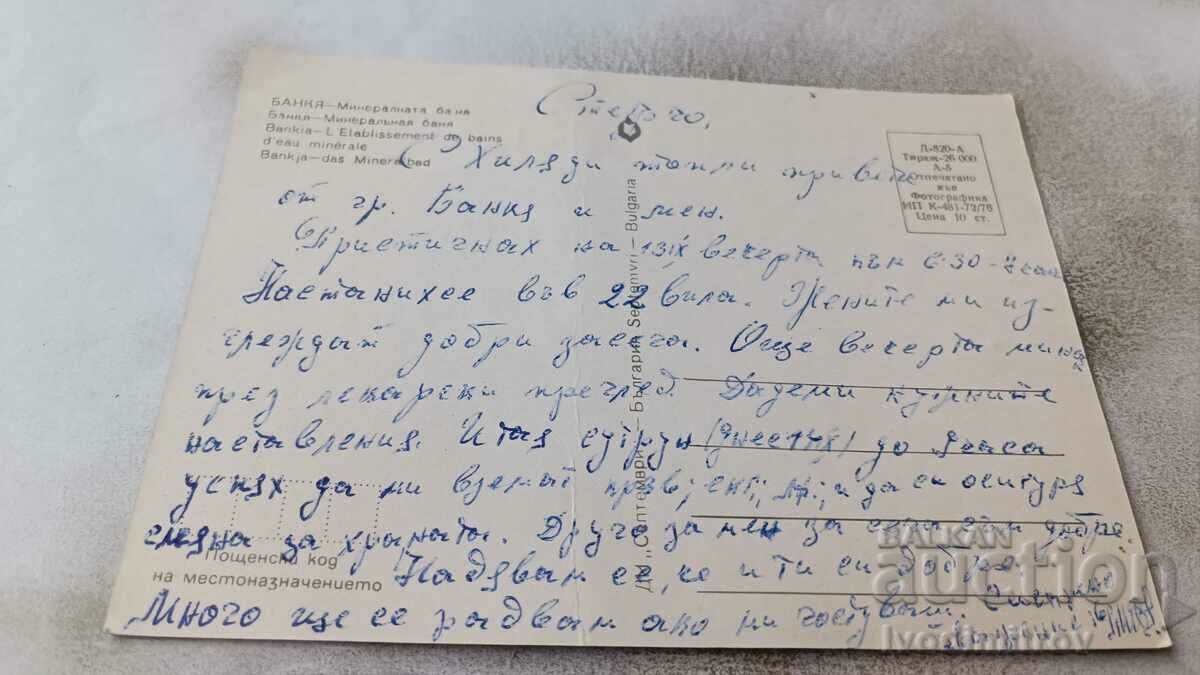 БАНКЯ — Минералната баня
Банкя — Минеральная баня
Bankia — L'Etablissement de bains
d'eau minérale
Bankja — das Mineralbad
Д-820-А
Тираж-26 000
А-5
Отпечатано
във
Фотографика
ИП К-481-73/76
Цена 10 ст.
ДМ „Септември" — България Septemvri — Bulgaria
Хиляди топли привети
от гр. Банкя и мен.
Пристигнах на 13 IX вечерта към 6:30 - 7 часа
Настанихее във 22 вила. Жените ми из-
греждат добри засега. Още вечерта мина
през лекарски преглед. Дадеми нужните
наставления. И тая сутрун (днес 14 IX) до 9 часа
успях да ми вземат кръв; и да си осигуря
за храната. Друго за мен за сега съм добре.
Надявам се, че и ти си добре.
Много ще се радвам ако ми гостуваш.
Пощенски код
на местоназначението
BALKAN
auction
IvoDimitrov